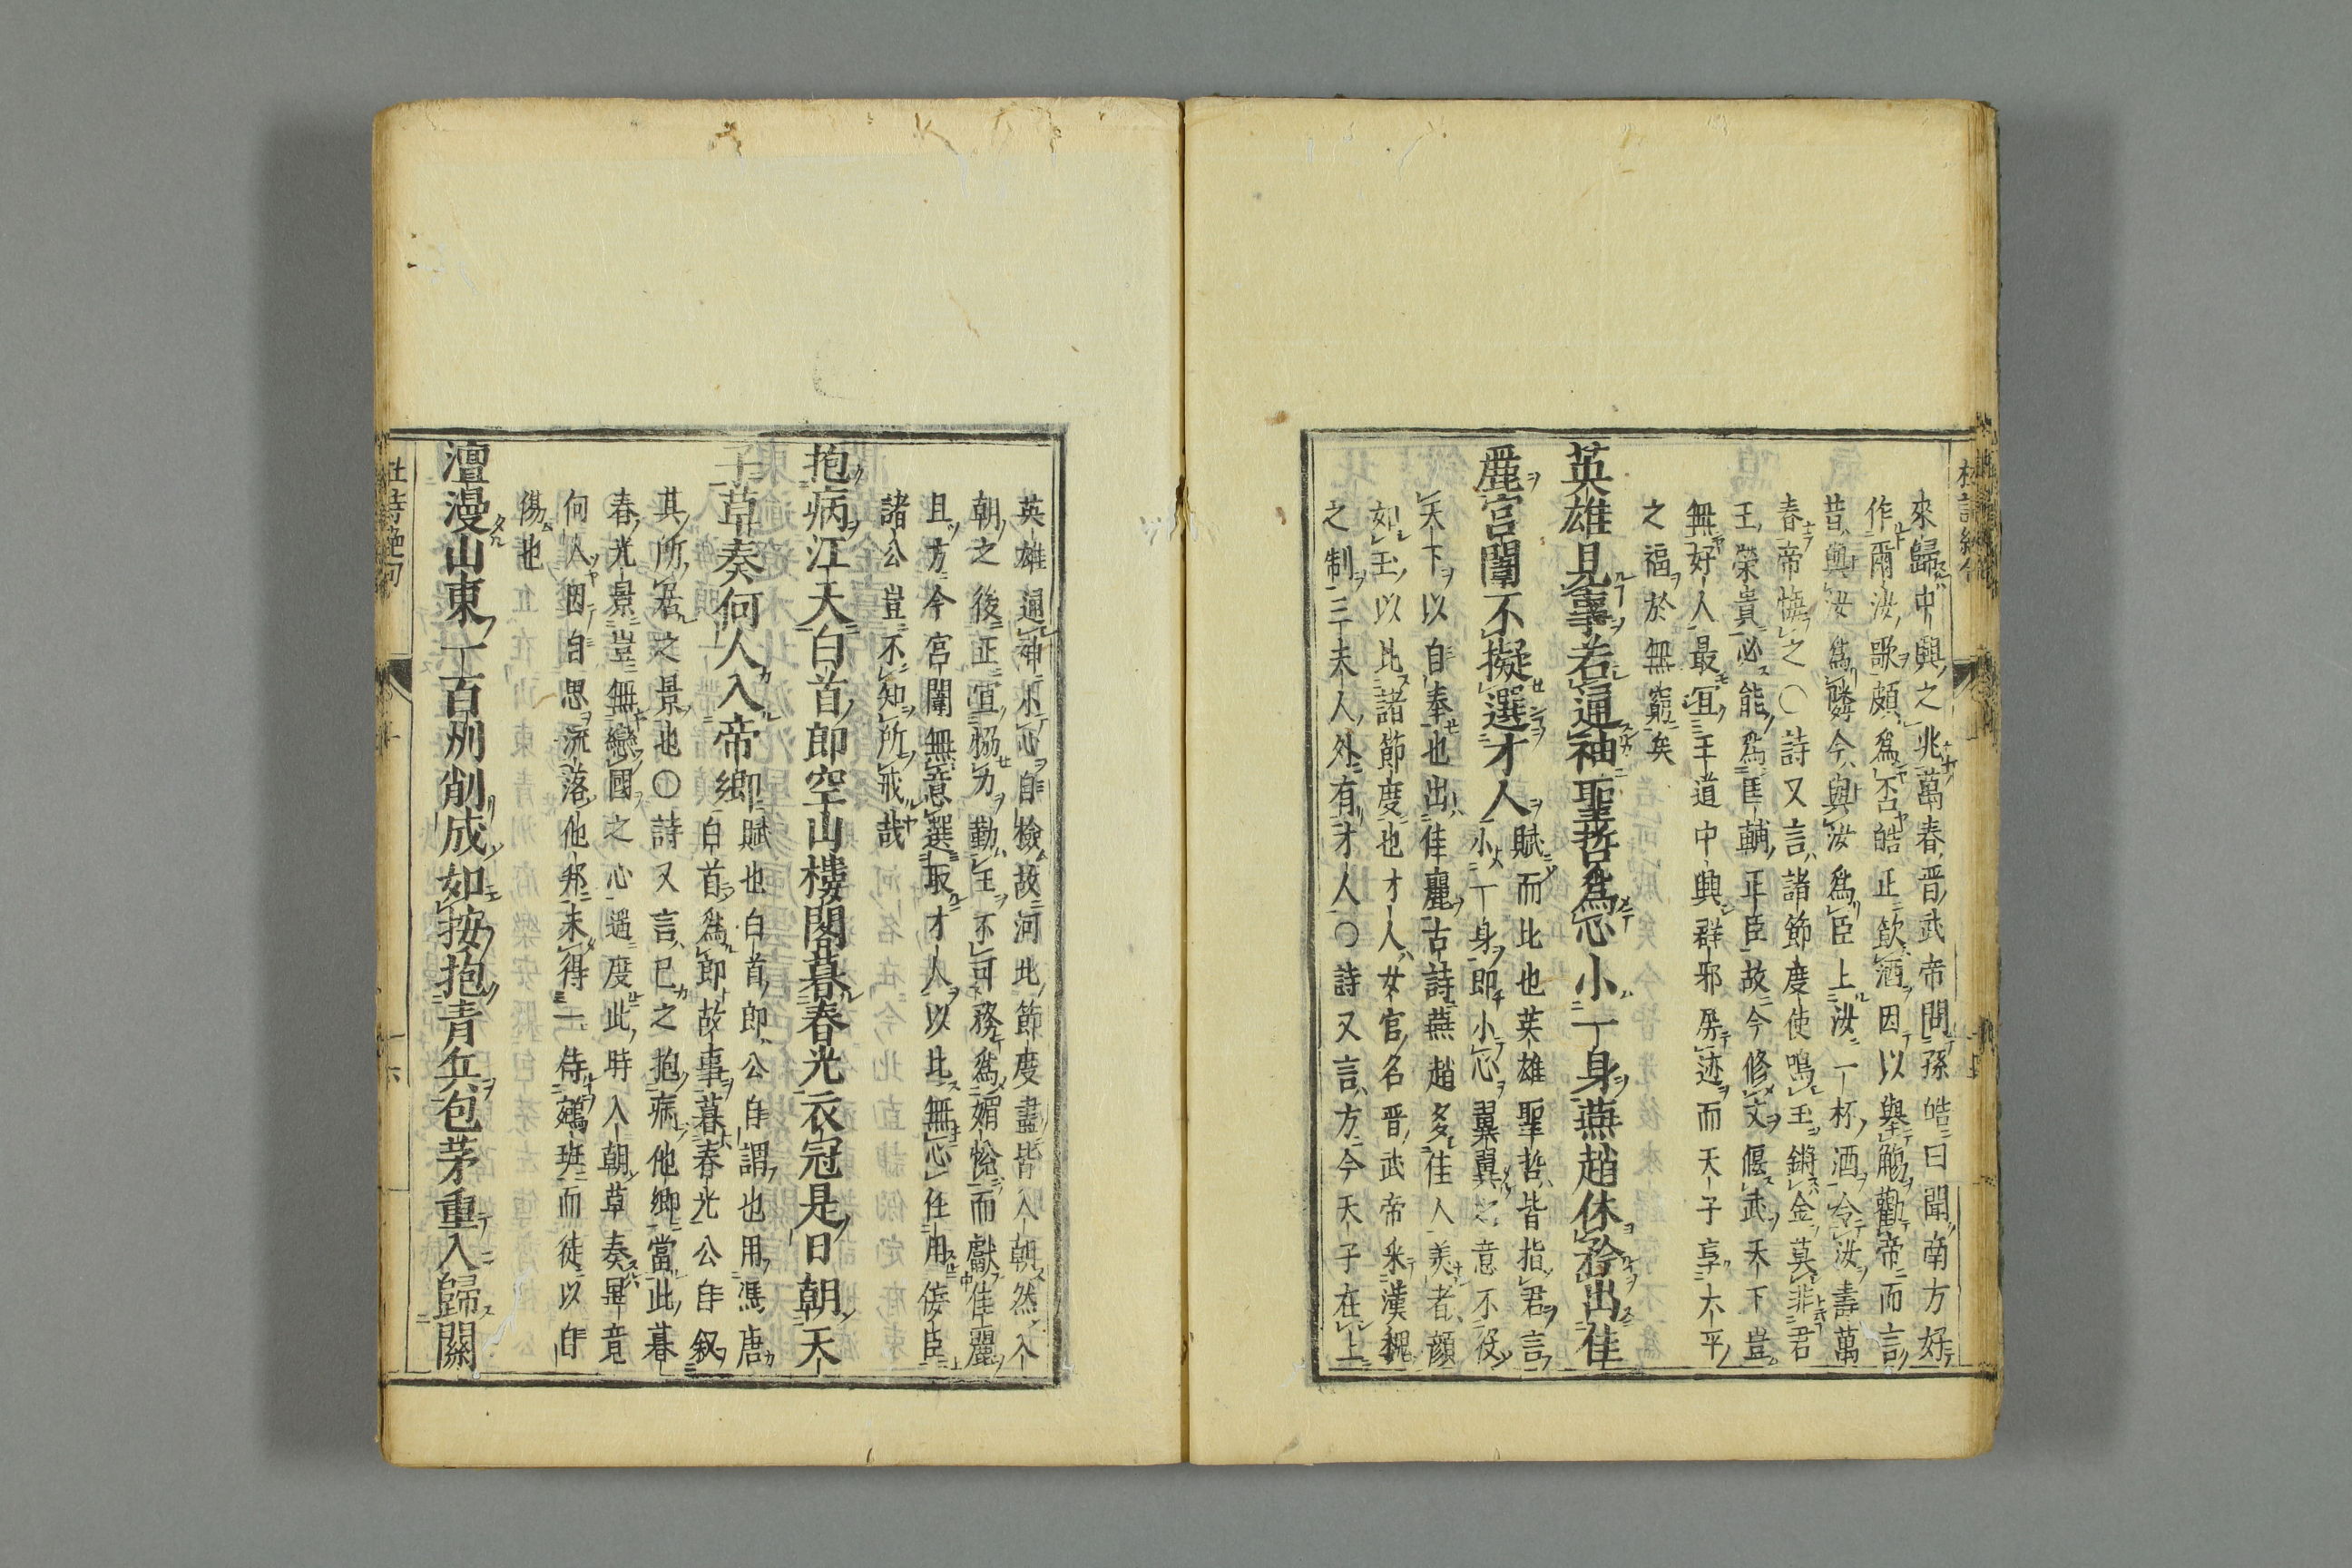 來歸中興之兆萬春晋武帝問孫皓曰聞南方好
作爾汝歌頗爲否皓正飲酒因以擧觴勸帝而言
昔與汝爲隣今與汝爲臣上汝一杯酒令汝壽萬
春帝悔之〇詩又言諸節度使鳴玉鏘金莫非君
王榮貴必能爲匡輔正臣故今修文偃武天下豈
無好人最宜王道中興群邪屏迹而天子享太平
之福於無窮矣
英雄見事若通神聖哲爲心小一身燕趙休矜出佳
麗宮闈不擬選才人賦而比也英雄聖哲皆指君言
小一身即小心翼翼之意不役
天下以自奉也出佳麗古詩燕趙多佳人美者顔
如玉以比諸節度也才人女官名晋武帝采漢魏
之制三夫人外有才人〇詩又言方今天子在上
英雄通神小心自檢故河北節度盡皆入朝然入
朝之後正宜協力勤王不可務爲媚悅而獻佳麗
且方今宮闈無意選取才人以比無心任用倿臣
諸公豈不知所戒哉
抱病江天白首郎空山樓閣暮春光衣冠是日朝天
子草奏何人入帝鄉賦也白首郎公自謂也用馮唐
白首爲郎故事暮春光公自叙
其所居之景也〇詩又言己之抱病他鄉當此暮
春光景豈無戀國之心遥度此時入朝草奏畢竟
何人因自思流落他邦未得一侍鵷班而徒以自
傷也
澶漫山東一百州削成如按抱青丘包茅重入歸關
杜詩絶句